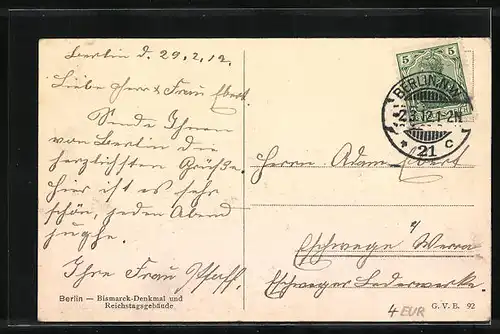 Berlin d. 29.2.12.
Liebe Herr & Frau Ebert.
Sende Ihnen
von Berlin die
herzlichsten Grüße.
hier ist es sehr
schön, jeden Abend
Ihre Frau Pfaff.
Berlin — Bismarck-Denkmal und
Reichstagsgebäude
5 5
BERLIN, N.W.
2.3.12.1-2N
* 21 c
Herrn Adam Ebert
Eschwege Werra
Eschweger Lederwerke.
G. V. B. 92
4 EUR